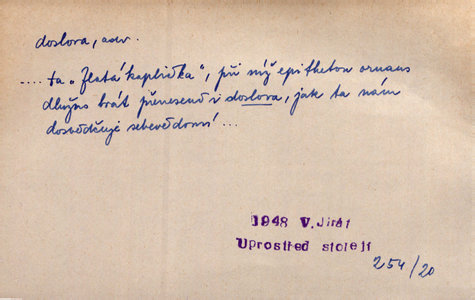 doslova, adv.
.... ta „Zlatá kaplička“, při níž epitheton ornans
dlužno brát přeneseně i doslova, jak ta nám
dosvědčuje sebevědomí ...
1948 V. Jirát
Uprostřed století
254/20